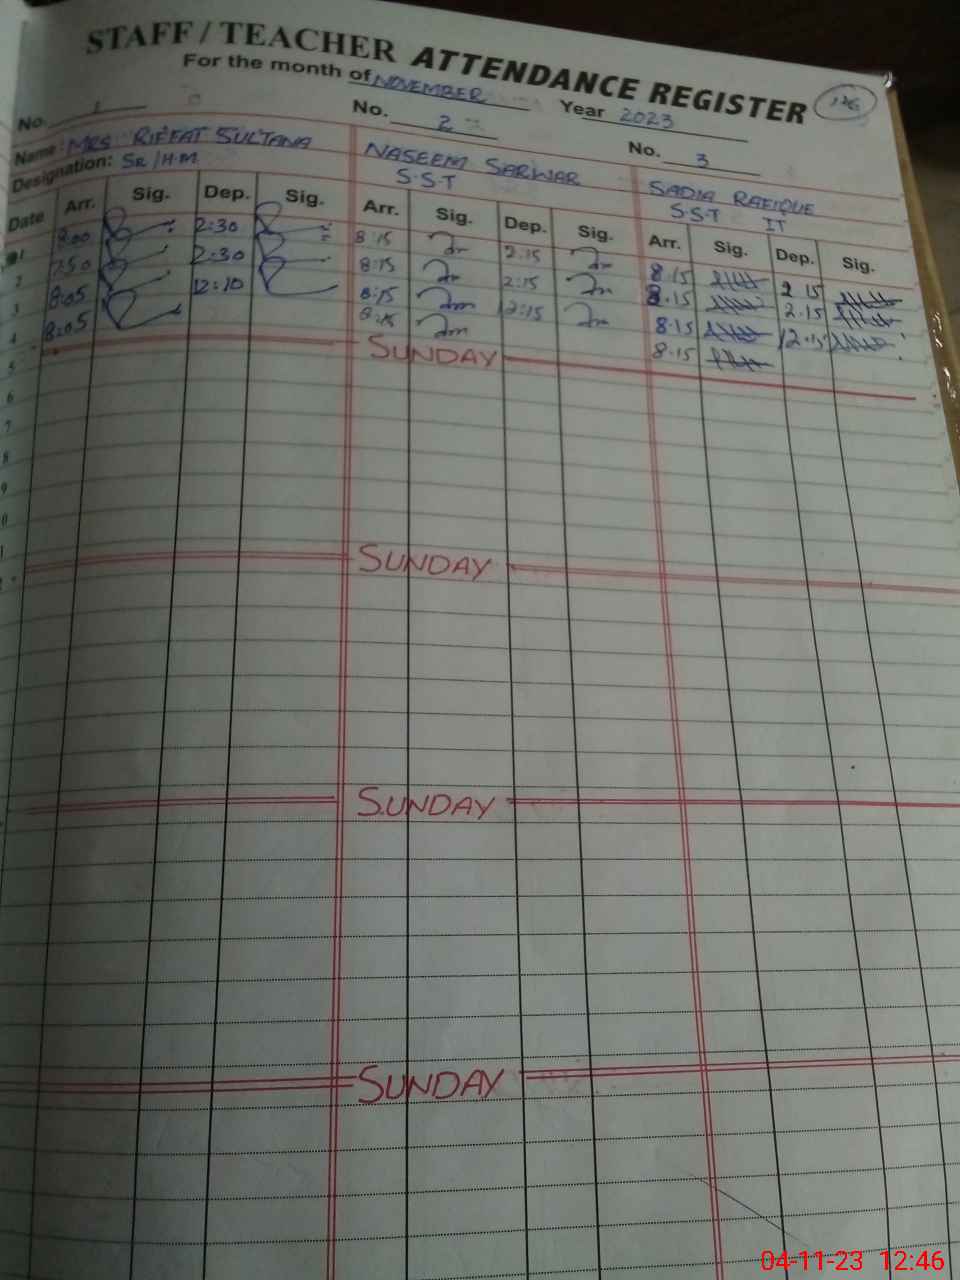 STAFF / TEACHER ATTENDANCE REGISTER
126
For the month of NOVEMBER Year 2023
No. 1 No. 2 No. 3
Name: MRS. RIFFAT SULTANA NASEEM SARWAR SADIA RAFIQUE
Designation: SR/H.M S.S.T S.S.T IT
Date Arr. Sig. Dep. Sig. Arr. Sig. Dep. Sig. Arr. Sig. Dep. Sig.
1 8:00 2:30 8:15 2:15 8.15 2 15
2 7:50 2:30 8:15 2:15 8.15 2.15
3 8:05 12:10 8:15 12:15 8.15 12.15
4 8:05 8:15 8.15
5 SUNDAY
6
7
8
9
SUNDAY
SUNDAY
SUNDAY
04-11-23 12:46